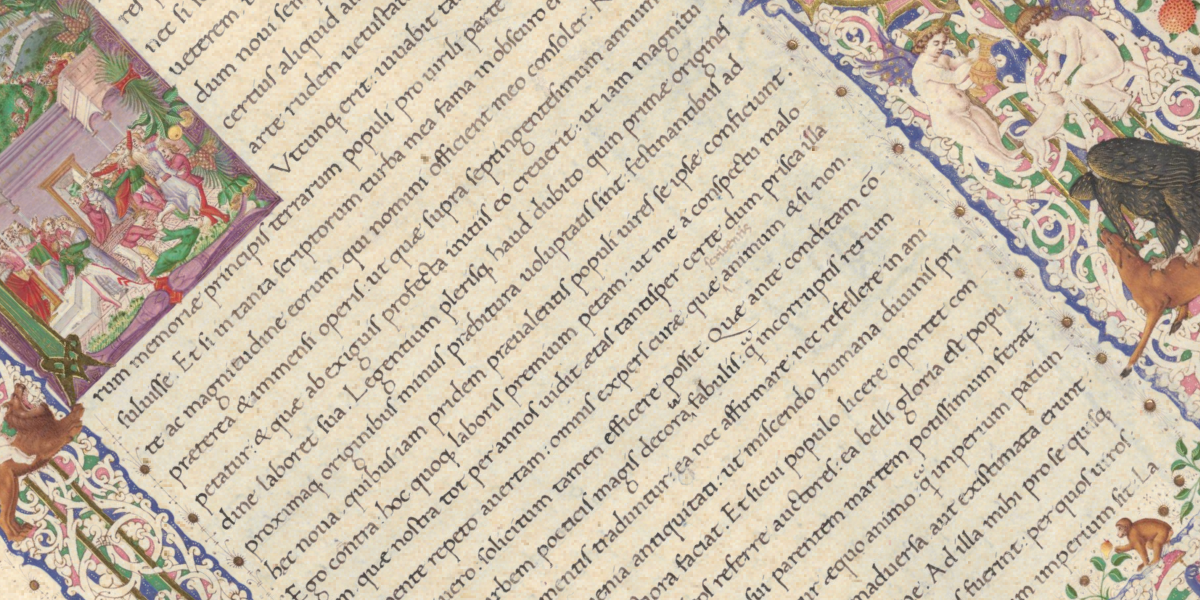 nec si
ueterem
dum noui sem
certius aliquid
arte rudem uetustat
Vtcunq; erit: iuuabit ta
rum memoriæ principis terrarum populi pro uirili parte
suluisse. Et si in tanta scriptorum turba mea fama in obscuro e
it: ac magnitudine eorum, qui nomini officient meo consoler.
præterea & immensi operis: ut quæ supra septingentesimum annum
petatur: & quæ ab exiguis profecta initiis eo creuerit: ut iam magnitu
dine laboret sua. Legentium plerisq; haud dubito quin primæ origines
proximaq; originibus minus præbitura uoluptatis sint: festinantibus ad
hec noua. quibus iam pridem præualentis populi uires se ipse conficiunt.
Ego contra hoc quoq; laboris præmium petam: ut me a conspectu malo
m. quæ nostra tot per annos uidit ætas tantisper certe dum prisca illa
ente repeto auertam: omnis expers curæ quæ scribentis animum & si non.
uero. sollicitum tamen efficere possit. Quæ ante conditam cō
rbem poeticis magis decora fabulis: q̃ incorruptis rerum
mentis traduntur: ea nec affirmare nec refellere in ani
enia antiquitati: ut miscendo humana diuinis pri
ora faciat. Et si cui populo licere oportet con
os referre auctores: ea belli gloria est popu
sui parentem martem potissimum ferat
ur æquo animo: q̃ imperium patiun
maduersa aut existimata erunt
ne. Ad illa mihi pro se quisq;
fuerint: per quos uiros
m imperium sit. La